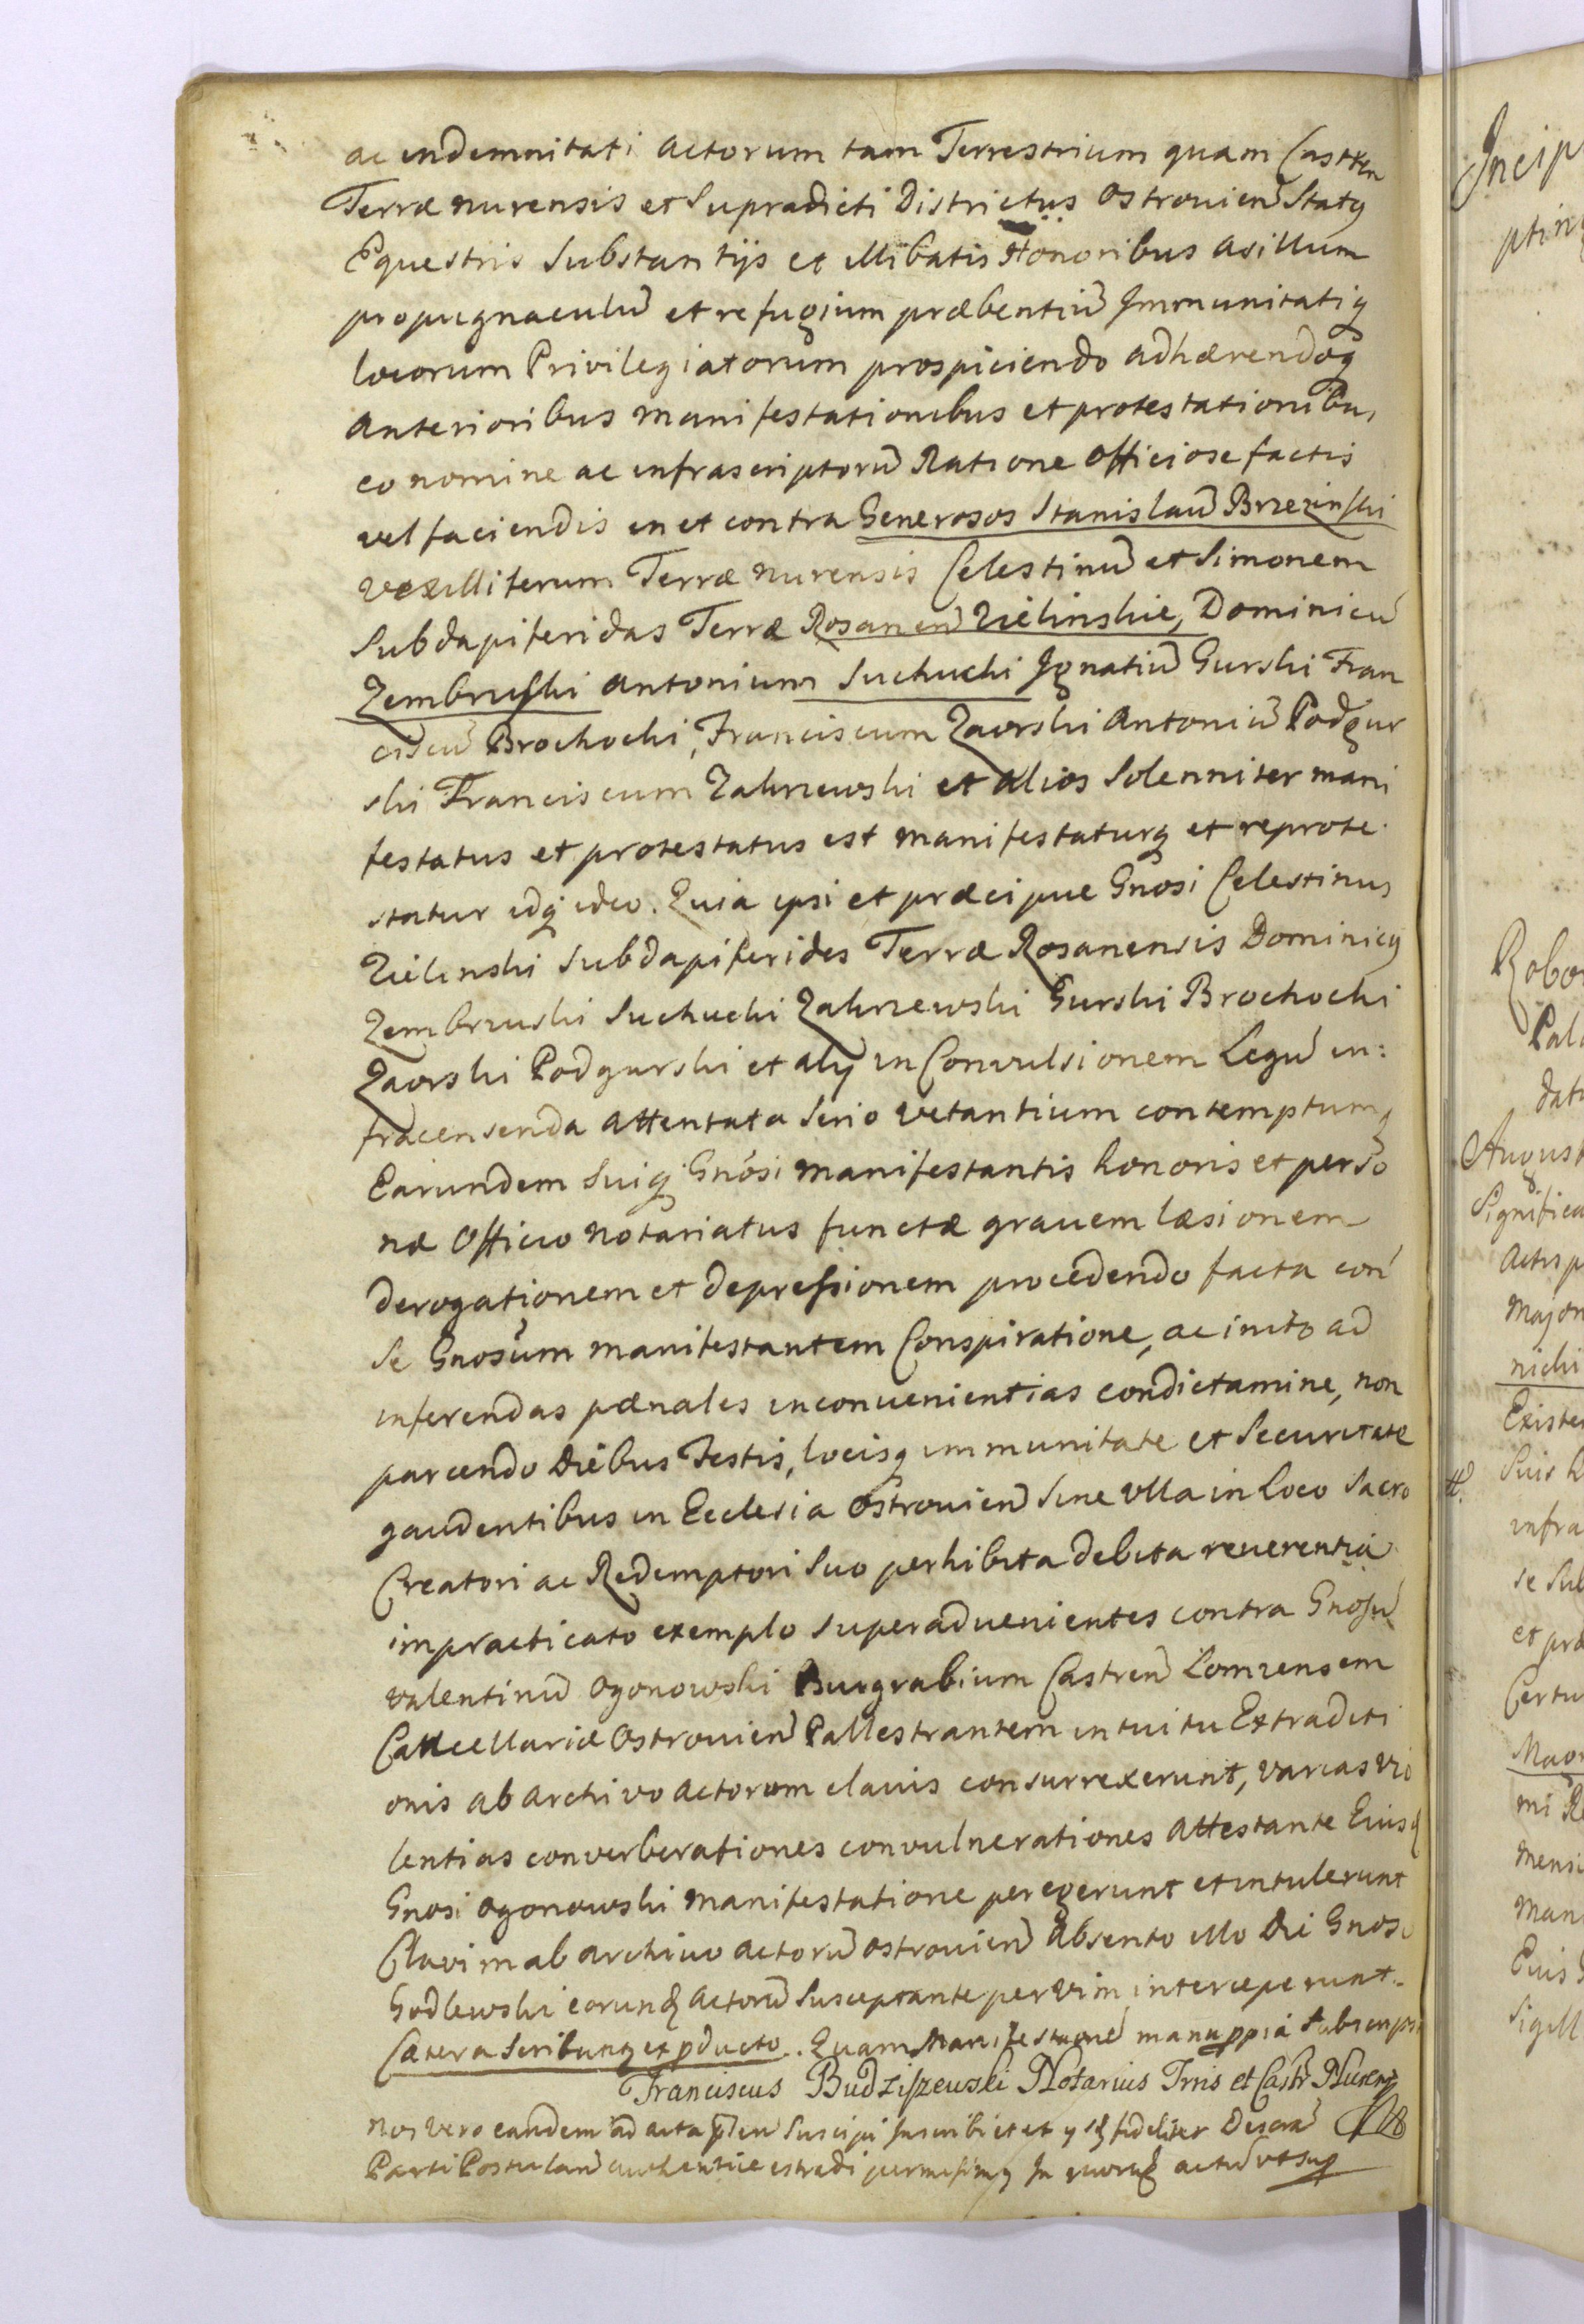 ac indemnitati actorum tam Terrestrium quam Castren
Terræ nurensis et Supradicti Districtus Ostrouien Statq
Equestris Substantijs et illibatis Honoribus asillum
propugnaculu et refugium præbentiu Immunitatiq
locorum Privilegiatorum prospiciendo adhærendoq
anterioribus manifestationibus et protestationibu,
eo nomine ac infrascriptoru Ratione officiose factis
vel faciendis in et contra Generosos Stanislau Brzezinski
vexilliferum Terræ nurensis Celestinu et Simonem
Subdapiferidas Terræ Rosanen Zielinskie, Dominicu
Zembruski antonium Suchucki Ignatiu Gurski Fran
ciscu Brochocki, Franciscum Zaorski Antoniu Podgur
ski Franciscum Zakrzewski et alios Solenniter mani
festatus et protestatus est manifestaturq et reprote
statur idq ideo. Quia ipsi et præcipue Gnosi Celestinus
Zielinski Subdapiferides Terræ Rosanensis Dominicq
Zembrzuski Suchucki Zakrzewski Gurski Brochocki
Zaorski Podgurski et alij in Convulsionem Legu in:
fracensenda attentata Serio vetantium contemptumq
Earundem Suiq Gnosi manifestantis honoris et perso
næ Officio notariatus functæ grauem læsionem
derogationem et depressionem procedendo facta con
se Gnosum manifestantem Conspiratione, ac inito ad
inferendas pænales inconuenientias condictamine, non
parcendo Diebus Festis, locisq immunitate et Securitate
gaudentibus in Ecclesia Ostrouien Sine ulla in Loco Sacro
Creatori ac Redemptori Suo perhibita debita reuerentia
impracticato exemplo Superaduenientes contra Gnosu
valentinu Ogonowski Burgrabium Castren Lomzensem
Cancellariæ Ostrouien Pallestrantem intuitu Extraditi
onis ab archivo actorum clauis consurrexerunt, varias vio
lentias converberationes convulnerationes attestante Eiusq
Gnosi Ogonowski manifestatione peregerunt et intulerunt
Clavim ab archiuo actoru ostrouien absento illo Die Gnos
Godlewski eorunq actoru Susceptante per vim interceperunt.
Cætera Scribuntq ex pducto. Quam Manifestione manu ppia Subscripsi
Franciscus Budziszewski Notarius Trris et Castr Nurenq
Nos vero eandem ad acta pñ Suscipi Inscribi et fideliter Descra
Parti Postulan authentice extradi permisimq In quorq actu ut Sup